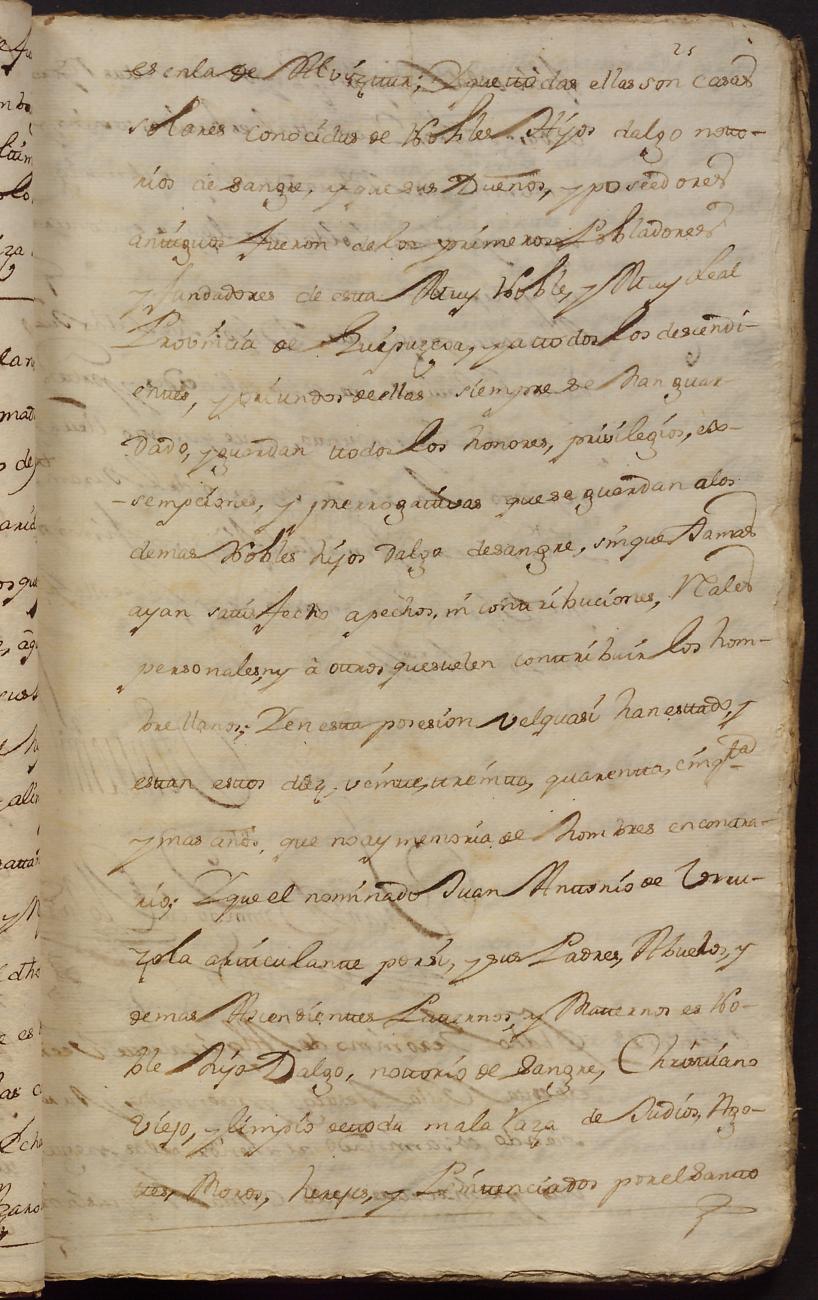 25
es en la de Alvistur; Y que ttodas ellas son casas
solares conocidas de Nobles Hijos dalgo notto-
rios de sangre, y que sus Dueños, y poseedores
antiguos fueron de los primeros Pobladores
y fundadores de esta Muy Noble, y Muy Leal
Provincia de Guipuzcoa, y a ttodos los descendi-
entes, y oriundos de ellas siempre se han guar
dado, y guardan ttodos los honores, privilegios, es-
sempciones, y prerrogativas que se guardan a los
demas Nobles hijos Dalgo de sangre, sin que Jamas
ayan sattisfecho a pechos, ni conttribuciones, Rales
personales, ny à ottros que suelen conttribuir los hom-
bres llanos; Y en esta posesion velquasi han esttado, y
estan estos diez, veinte, treinta, quarentta, cinqta
y mas años, que no ay memoria de hombres en conttra-
rio; Y que el nominado Juan Anttonio de Urru-
zola articulante por si, y sus Padres, Abuelos, y
demas Ascendientes Patternos, y Matternos es No-
ble hijo Dalgo, nottorio de Sangre, Christiano
Viejo, y limpio de ttoda mala Raza de Judios, Ago-
ttes, Moros, herejes, y Penitenciados por el Santto